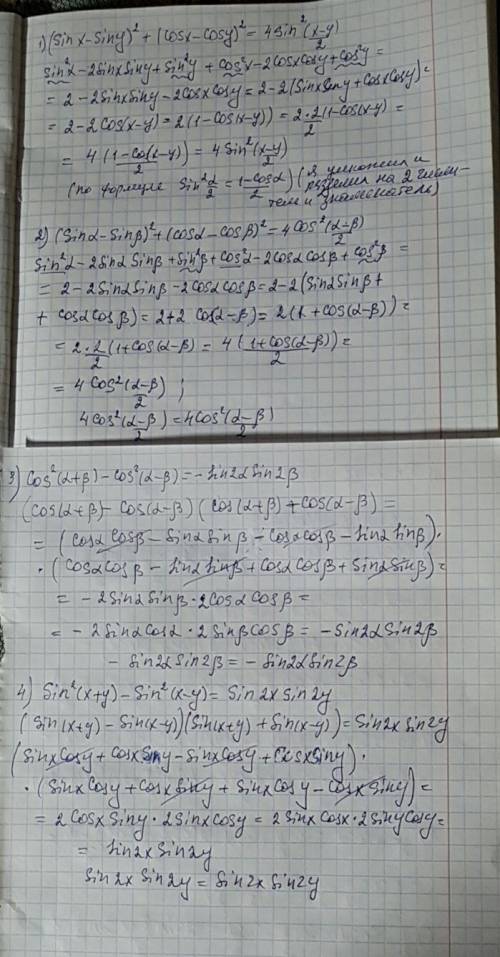 1) (Sin x - Sin y)² + (Cos x - Cos y)² = 4 Sin² (x-y)/2
Sin²x - 2Sin x Sin y + Sin²y + Cos²x - 2Cos x Cos y + Cos²y =
= 2 - 2Sin x Sin y - 2Cos x Cos y = 2 - 2(Sin x Sin y + Cos x Cos y) =
= 2 - 2Cos(x-y) = 2(1 - Cos(x-y)) = 2·2/2 (1 - Cos(x-y)) =
= 4 (1 - Cos(x-y))/2 = 4 Sin² (x-y)/2
(по формуле Sin² α/2 = (1 - Cos α)/2) (Я умножил и
разделил на 2 числи-
тель и знаменатель)
2) (Sin α - Sin β)² + (Cos α - Cos β)² = 4 Cos² (α-β)/2
Sin²α - 2Sin α Sin β + Sin²β + Cos²α - 2Cos α Cos β + Cos²β =
= 2 - 2Sin α Sin β - 2Cos α Cos β = 2 - 2(Sin α Sin β +
+ Cos α Cos β) = 2 + 2 Cos(α-β) = 2(1 + Cos(α-β)) =
= 2·2/2 (1 + Cos(α-β) = 4 (1 + Cos(α-β))/2 =
= 4 Cos² (α-β)/2 ;
4Cos² (α-β)/2 = 4Cos² (α-β)/2
3) Cos²(α+β) - Cos²(α-β) = - Sin2α Sin2β
(Cos(α+β) - Cos(α-β) (Cos(α+β) + Cos(α-β) =
= (Cos α Cos β - Sin α Sin β - Cos α Cos β - Sin α Sin β) ·
· (Cos α Cos β - Sin α Sin β + Cos α Cos β + Sin α Sin β) =
= - 2Sin α Sin β · 2Cos α Cos β =
= - 2Sin α Cos α · 2 Sin β Cos β = - Sin2α Sin2β
- Sin2α Sin2β = - Sin2α Sin2β
4) Sin²(x+y) - Sin²(x-y) = Sin2x Sin2y
(Sin(x+y) - Sin(x-y))(Sin(x+y) + Sin(x-y)) = Sin2x Sin2y
(Sin x Cos y + Cos x Sin y - Sin x Cos y + Cos x Sin y) ·
· (Sin x Cos y + Cos x Sin y + Sin x Cos y - Cos x Sin y) =
= 2Cos x Sin y · 2Sin x Cos y = 2Sin x Cos x · 2Sin y Cos y =
= Sin2x Sin2y
Sin2x Sin2y = Sin2x Sin2y